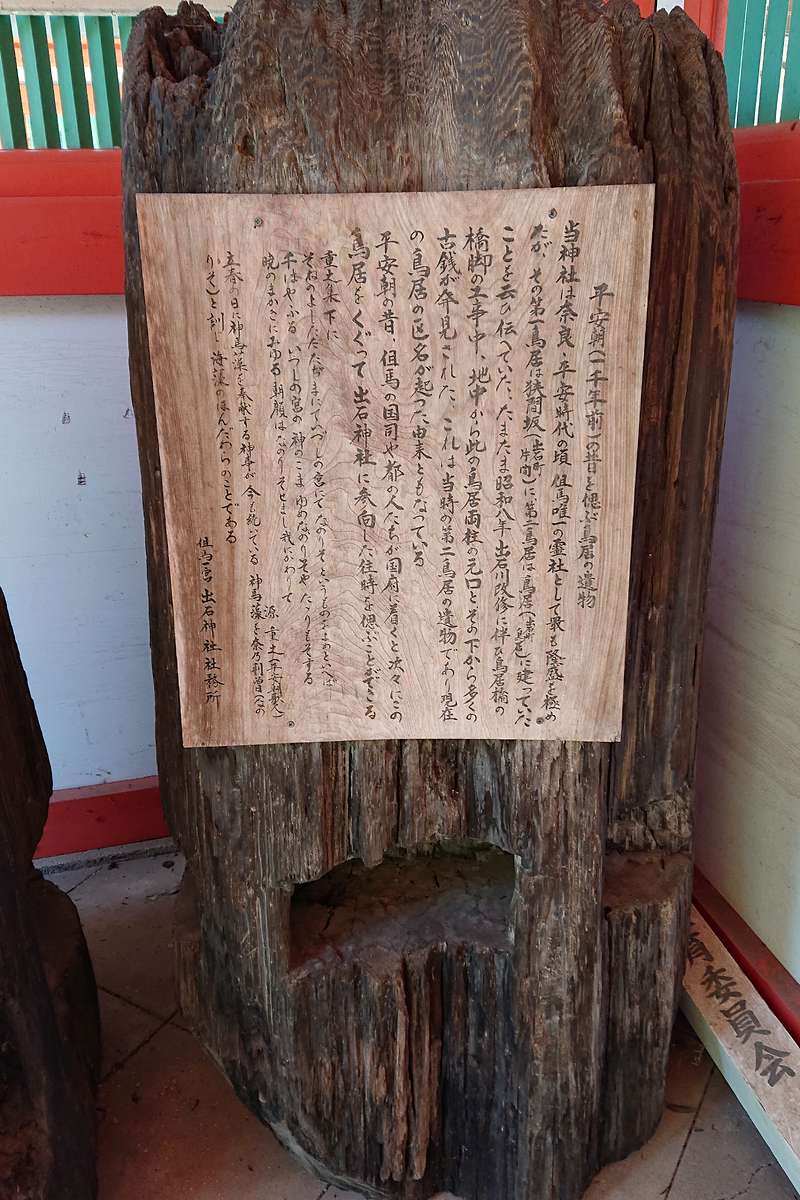 平安朝(一千年前)の昔を偲ぶ鳥居の遺物
当神社は奈良・平安時代の頃 但馬唯一の霊社として最も隆盛を極め
たが、その第一鳥居は狭間坂(出石町片間)に、第二鳥居は鳥居(出石町鳥居)に建っていた
ことを云ひ伝へていた、たまたま昭和八年 出石川改修に伴ひ鳥居橋の
橋脚の工事中、地中から此の鳥居両柱の元口とその下から多くの
古銭が発見された、これは当時の第二鳥居の遺物であり現在
の鳥居の区名が起った由来ともなっている
平安朝の昔、但馬の国司や都の人たちが国府に着くと次々にこの
鳥居をくぐって出石神社に参向した往時を偲ぶことができる
重之集 下に
そねのよしただたがまにていづしの宮にてなのりそというものよめといへば
千はやふる いづしの宮の 神のこま ゆめなのりそや たゝりもぞする
暁のまがきにみゆる 朝顔は なのりそせまし 我にかわりて
源 重之(平安朝歌人)
立春の日に神馬藻を奉献する神事が今も続いている 神馬藻を奈乃利曽(なの
りそ)と訓し 海藻のほんだわらのことである
但馬一宮 出石神社社務所
委員会